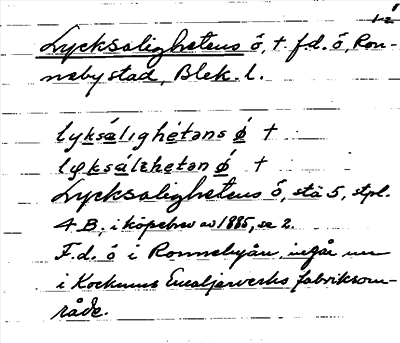 1-2
Lycksalighetens ö, † f.d. ö, Ron-
neby stad, Blek. l.
lyksálighétəns ǿ †
lyksálehetən ǿ †
Lycksalighetens ö, stä 5, stpl.
4 B, i köpebrev av 1885, se 2.
F.d. ö i Ronnebyån, ingår nu
i Kockums Emaljerverks fabriksom-
råde.